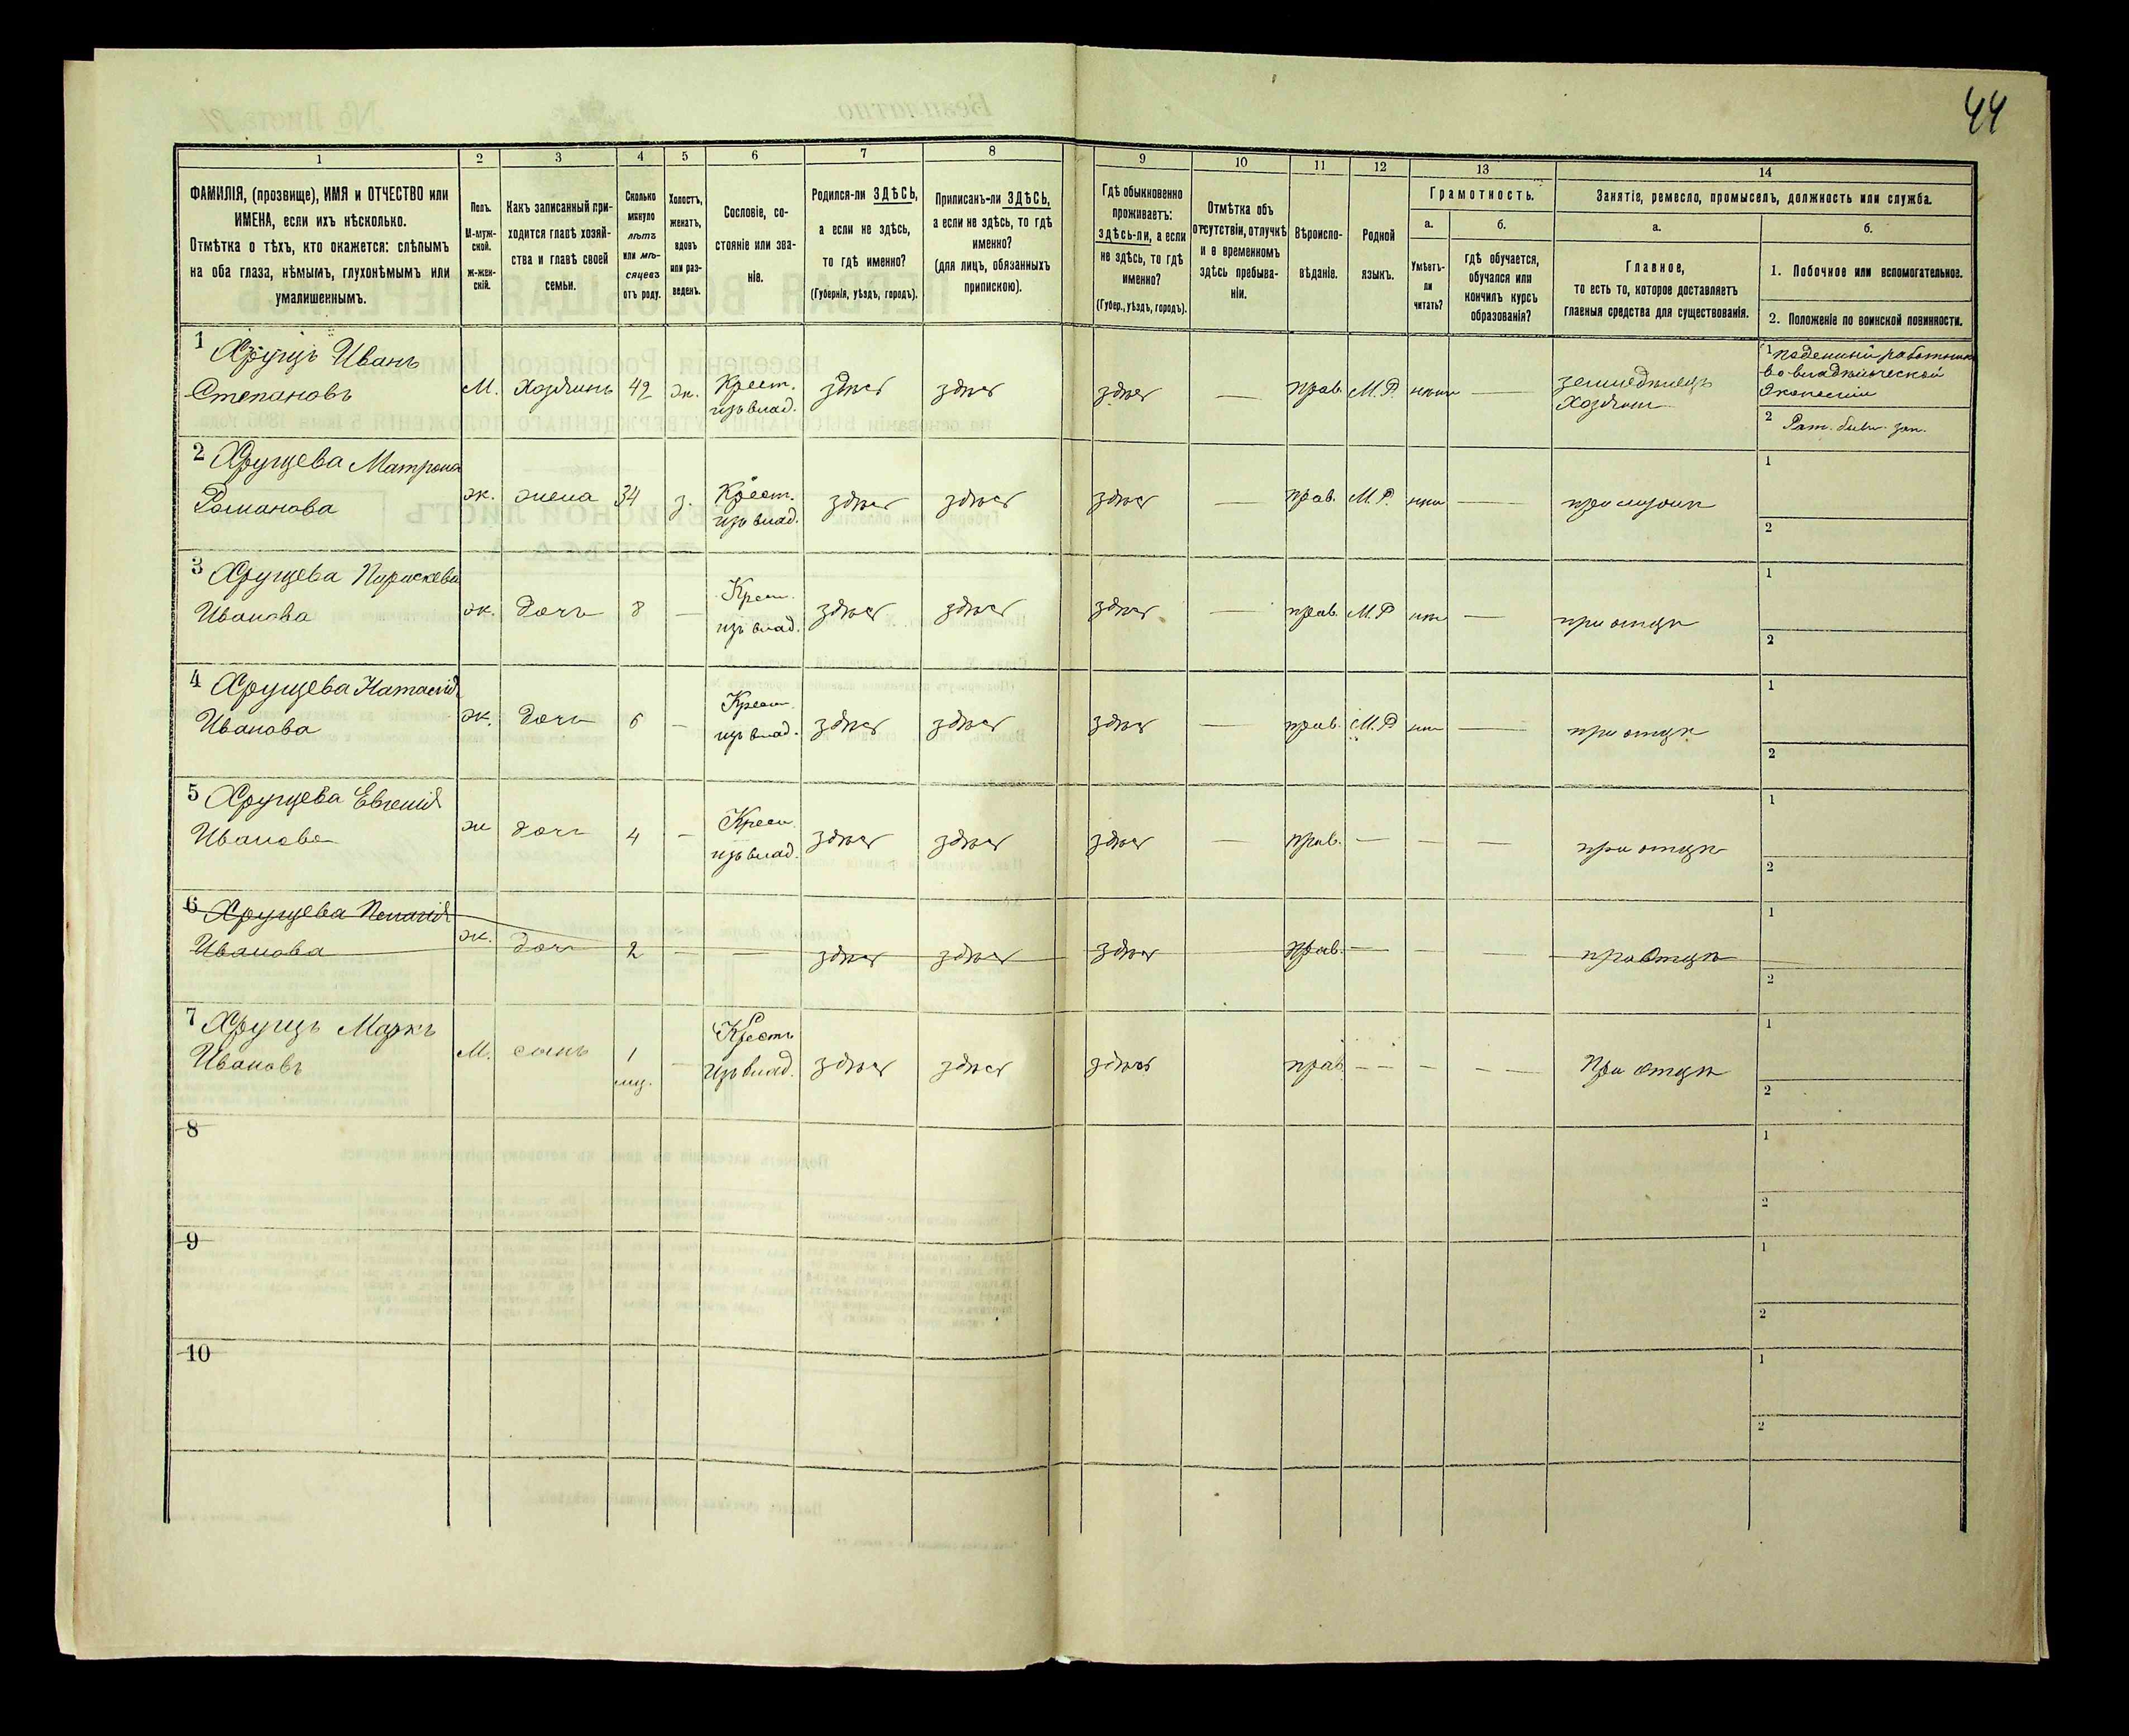 44
1 2 3 4 5 6 7 8 9 10 11 12 13 14
ФАМИЛІЯ, (прозвище), ИМЯ и ОТЧЕСТВО или
ИМЕНА, если ихъ нѣсколько.
Отмѣтка о тѣхъ, кто окажется: слѣпымъ
на оба глаза, нѣмымъ, глухонѣмымъ или
умалишеннымъ.
Полъ.
М-муж-
ской.
Ж-жен-
скій.
Какъ записанный при-
ходится главѣ хозяй-
ства и главѣ своей
семьи.
Сколько
минуло
лѣтъ
или мѣ-
сяцевъ
отъ роду.
Холостъ,
женатъ,
вдовъ
или раз-
веденъ.
Сословіе, со-
стояніе или зва-
ніе.
Родился-ли ЗДѢСЬ,
а если не здѣсь,
то гдѣ именно?
(Губернія, уѣздъ, городъ).
Приписанъ-ли ЗДѢСЬ,
а если не здѣсь, то гдѣ
именно?
(для лицъ, обязанныхъ
припискою).
Гдѣ обыкновенно
проживаетъ:
здѣсь-ли, а если
не здѣсь, то гдѣ
именно?
(Губер., уѣздъ, городъ).
Отмѣтка объ
отсутствіи, отлучкѣ
и о временномъ
здѣсь пребыва-
ніи.
Вѣроиспо-
вѣданіе.
Родной
языкъ.
Грамотность.
а.
Умѣетъ-
ли
читать?
б.
Гдѣ обучается,
обучался или
кончилъ курсъ
образованія?
Занятіе, ремесло, промыселъ, должность или служба.
а.
Главное,
то есть то, которое доставляетъ
главныя средства для существованія.
б.
1. Побочное или вспомогательное.
2. Положеніе по воинской повинности.
1 Хрущъ Иванъ
Степановъ
М. Хозяинъ 42 ж. Крест.
изъ влад. здѣсь здѣсь здѣсь — прав. М.Р. —
земледѣлецъ
Хозяинъ
1 поденный работникъ
во владѣльческой
Экономіи
2
2 Хрущева Матрона
Романова
ж. жена 34 з. Крест.
изъ влад. здѣсь здѣсь здѣсь — прав. М.Р. —
1
2
3 Хрущева Параскева
Иванова
ж. дочь 8 — Крест.
изъ влад. здѣсь здѣсь здѣсь — прав. М.Р — при отцѣ
1
2
4 Хрущева Наталія
Иванова
ж. дочь 6 — Крест.
изъ влад. здѣсь здѣсь здѣсь — прав. М.Р — при отцѣ
1
2
5 Хрущева Евгенія
Иванова
ж дочь 4 — Крест.
изъ влад. здѣсь здѣсь здѣсь — прав. — — — при отцѣ
1
2
6 Хрущева Пелагія
Иванова
ж. дочь 2 — — здѣсь здѣсь здѣсь прав. — — — при Отцѣ
1
2
7 Хрущъ Маркъ
Ивановъ
М. сынъ 1
мц. — Крестъ
изъ влад. здѣсь здѣсь здѣсь прав. — — — — При отцѣ
1
2
8
1
2
9
1
2
10
1
2